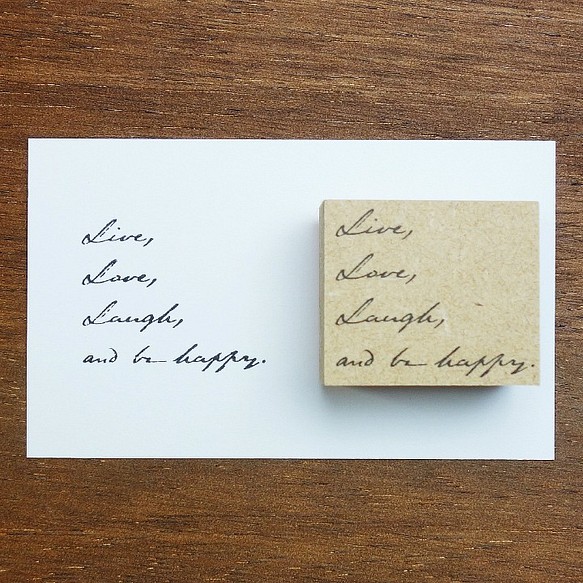 Live,
Love,
Laugh,
and be happy.
Live,
Love,
Laugh,
and be happy.